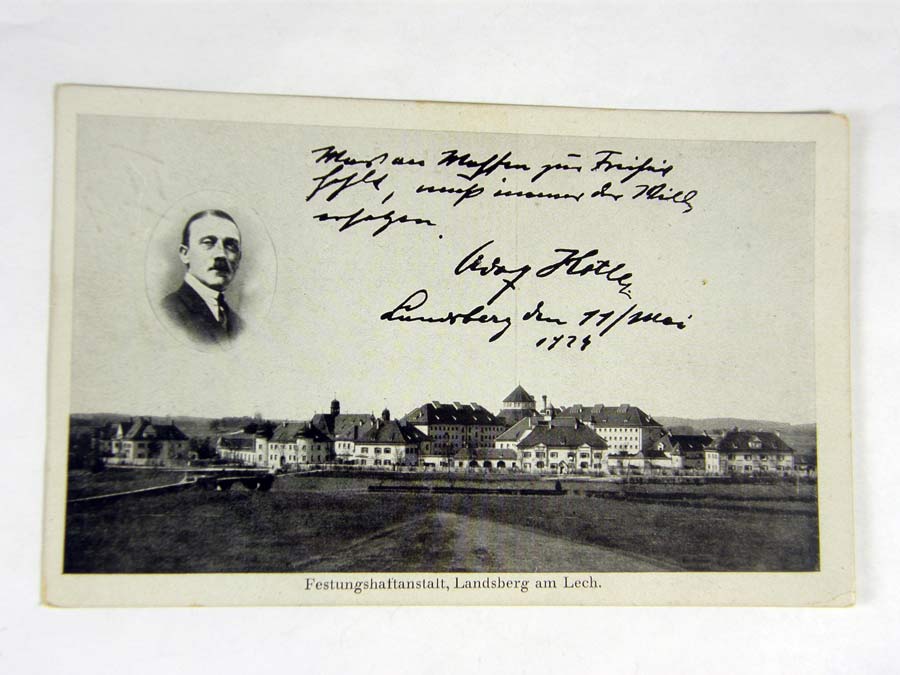 Was an Waffen zur Freiheit
fehlt, muß immer der Wille
ersetzen.
Adolf Hitler
Landsberg den 11/Mai
1924
Festungshaftanstalt, Landsberg am Lech.